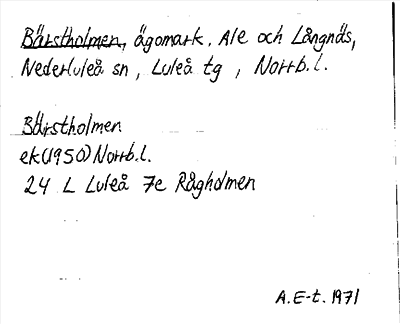 Bärstholmen, ägomark. Ale och Långnäs,
Nederluleå sn, Luleå tg, Norrb.l.
Bärstholmen
ek(1950)Norrb.l.
24 L Luleå 7e Rågholmen
A.E-t. 1971